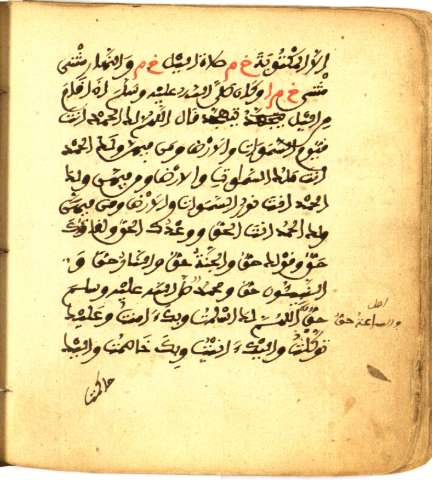 إلا المكتوبة خ م صلاة الليل خ م والنهار مثنى
مثنى خ م ا وكان صلى الله عليه وسلم إذا قام
من الليل يتهجد قال اللهم لك الحمد أنت
قيوم السموات والأرض ومن فيهن ولك الحمد
أنت ملك السموات والأرض ومن فيهن ولك
الحمد أنت نور السموات والأرض ومن فيهن
ولك الحمد أنت الحق ووعدك الحق ولقاؤك
حق وقولك حق والجنة حق والنار حق و
النبيئون حق ومحمد صلى الله عليه وسلم
حق اللهم لك أسلمت وبك ءامنت وعليك
توكلت وإليك أنبت وبك خاصمت وإليك
حاكمت
والساعة حق